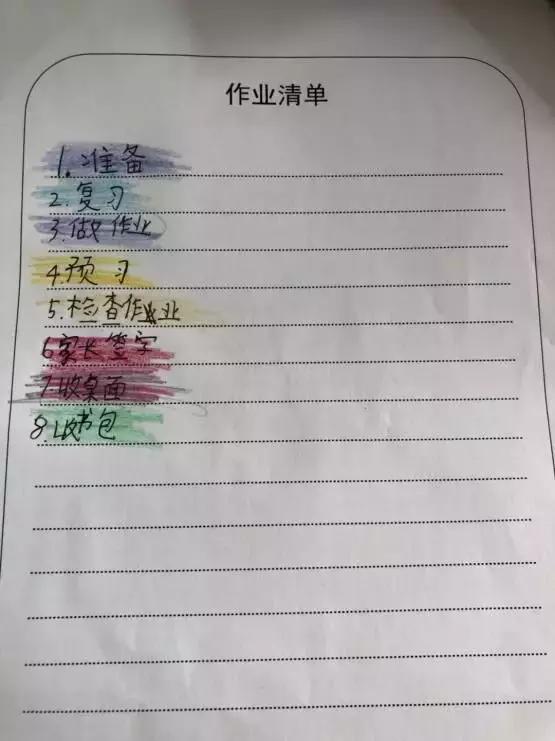 作业清单
1.准备
2.复习
3.做作业
4.预习
5.检查作业
6家长签字
7.收桌面
8收书包